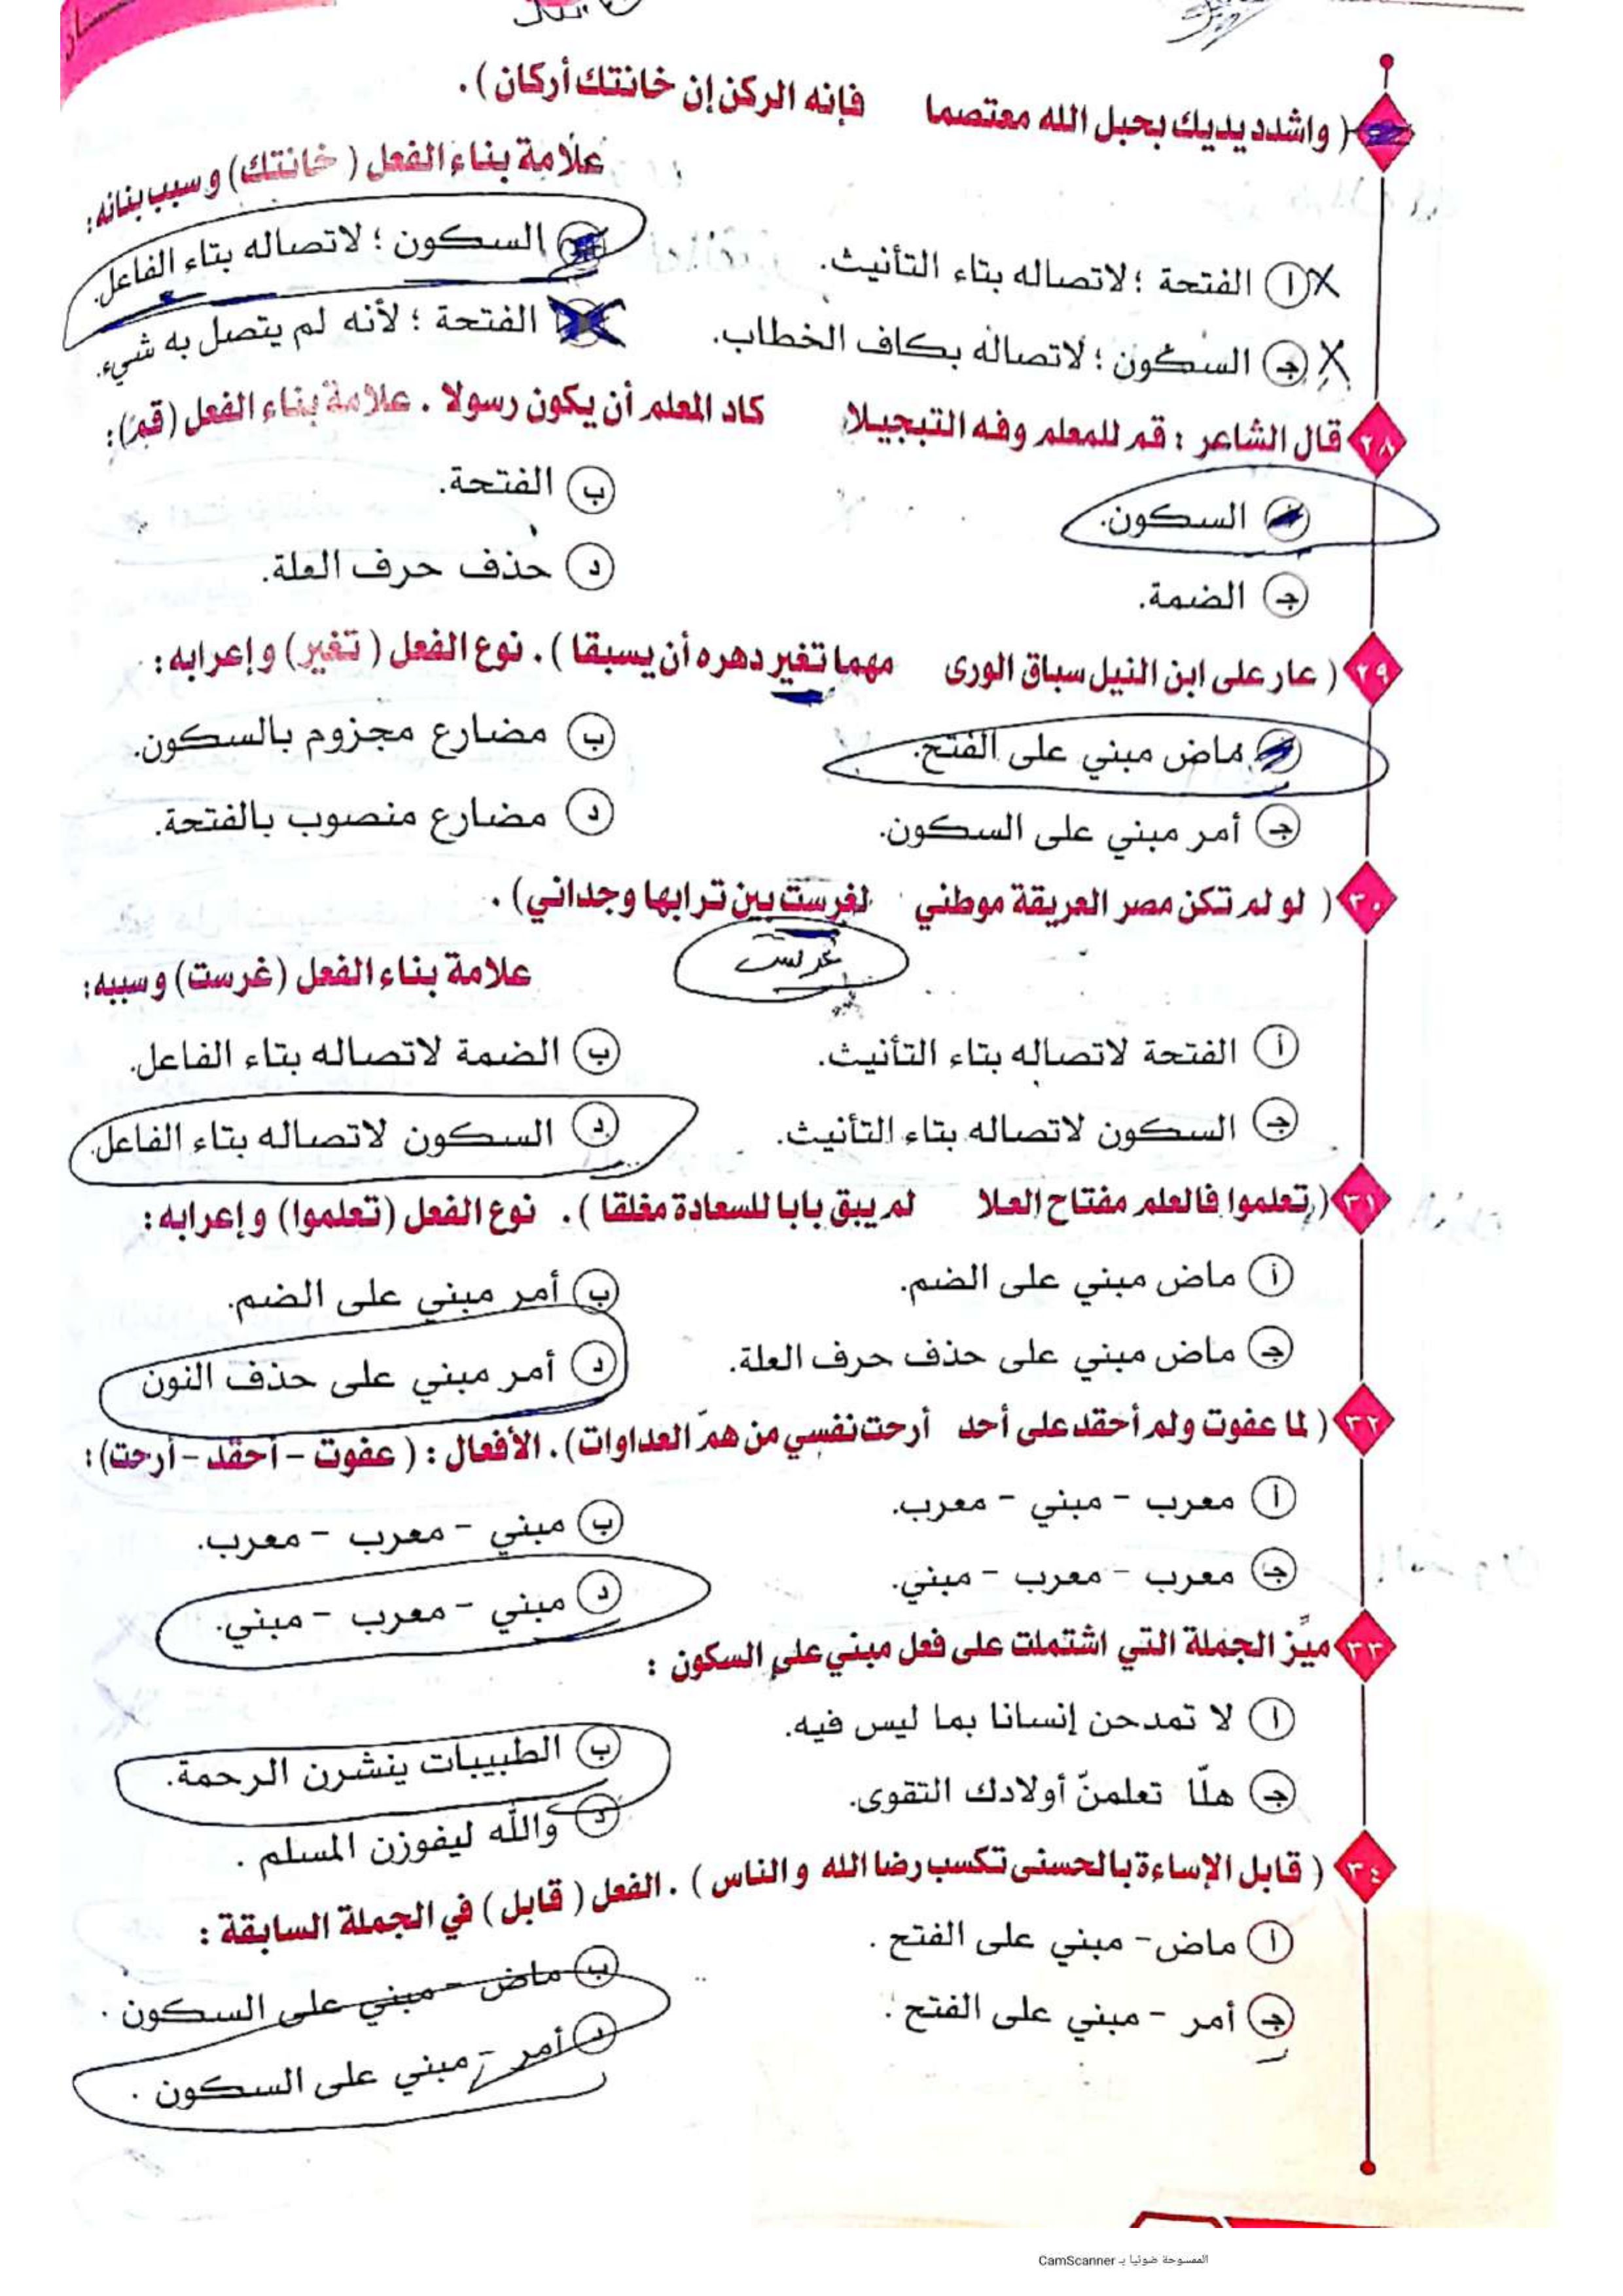 ( واشدد يديك بحبل الله معتصما فإنه الركن إن خانتك أركان ) .
علامة بناء الفعل ( خانتك ) وسبب بنائه :
ا الفتحة ؛ لاتصاله بتاء التأنيث.
السكون ؛ لاتصاله بتاء الفاعل.
ج السكون ؛ لاتصاله بكاف الخطاب.
الفتحة ؛ لأنه لم يتصل به شيء.
٢٨ قال الشاعر : قم للمعلم وفه التبجيلا كاد المعلم أن يكون رسولا . علامة بناء الفعل ( قم ) :
السكون.
ب الفتحة.
ج الضمة.
د حذف حرف العلة.
٢٩ ( عار على ابن النيل سباق الورى مهما تغير دهره أن يسبقا ) . نوع الفعل ( تغير ) وإعرابه :
ماض مبني على الفتح.
ب مضارع مجزوم بالسكون.
ج أمر مبني على السكون.
د مضارع منصوب بالفتحة.
٣٠ ( لو لم تكن مصر العريقة موطني لغرست بين ترابها وجداني ) .
غرست
علامة بناء الفعل (غرست) وسببه :
أ الفتحة لاتصاله بتاء التأنيث.
ب الضمة لاتصاله بتاء الفاعل.
ج السكون لاتصاله بتاء التأنيث.
د السكون لاتصاله بتاء الفاعل.
٣١ ( تعلموا فالعلم مفتاح العلا لم يبق بابا للسعادة مغلقا ) . نوع الفعل (تعلموا) وإعرابه :
أ ماض مبني على الضم.
ب أمر مبني على الضم.
ج ماض مبني على حذف حرف العلة.
د أمر مبني على حذف النون
٣٢ ( لما عفوت ولم أحقد على أحد أرحت نفسي من همّ العداوات ) . الأفعال : ( عفوت - أحقد - أرحت ) :
أ معرب - مبني - معرب.
ب مبني - معرب - معرب.
ج معرب - معرب - مبني.
د مبني - معرب - مبني.
٣٣ ميّز الجملة التي اشتملت على فعل مبني على السكون :
ا لا تمدحن إنسانا بما ليس فيه.
ب الطبيبات ينشرن الرحمة.
ج هلّا تعلمنّ أولادك التقوى.
د والله ليفوزن المسلم .
٣٤ ( قابل الإساءة بالحسنى تكسب رضا الله والناس ) . الفعل ( قابل ) في الجملة السابقة :
ا ماض - مبني على الفتح .
ب ماض - مبني على السكون .
ج أمر - مبني على الفتح .
د أمر - مبني على السكون .
الممسوحة ضوئيا بـ CamScanner